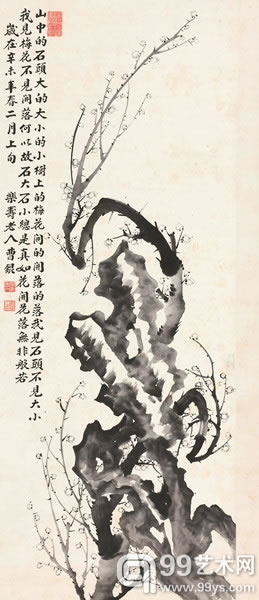 山中的石頭大的大小的小樹上的梅花開的開落的落我見石頭不見大小
我見梅花不見開落何以故石大石小總是真如花開花落無非般若
歲在辛未年春二月上旬
樂壽老人曹錕
99艺术网
www.99ys.com